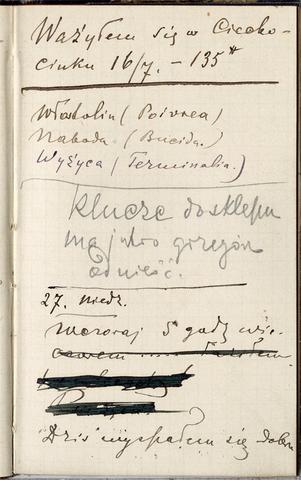 Ważyłem się w Ciecho-
cinku 16/7. – 135 #
Włostolin (Poivrea)
Naboda (Bucida.)
Wyżyca (Terminalia.)
Klucze do sklepu
ma jutro
odnieść.
27. niedz.
Wczoraj 5 godz. wie-
czorem
Dziś wyspałem się dobrze